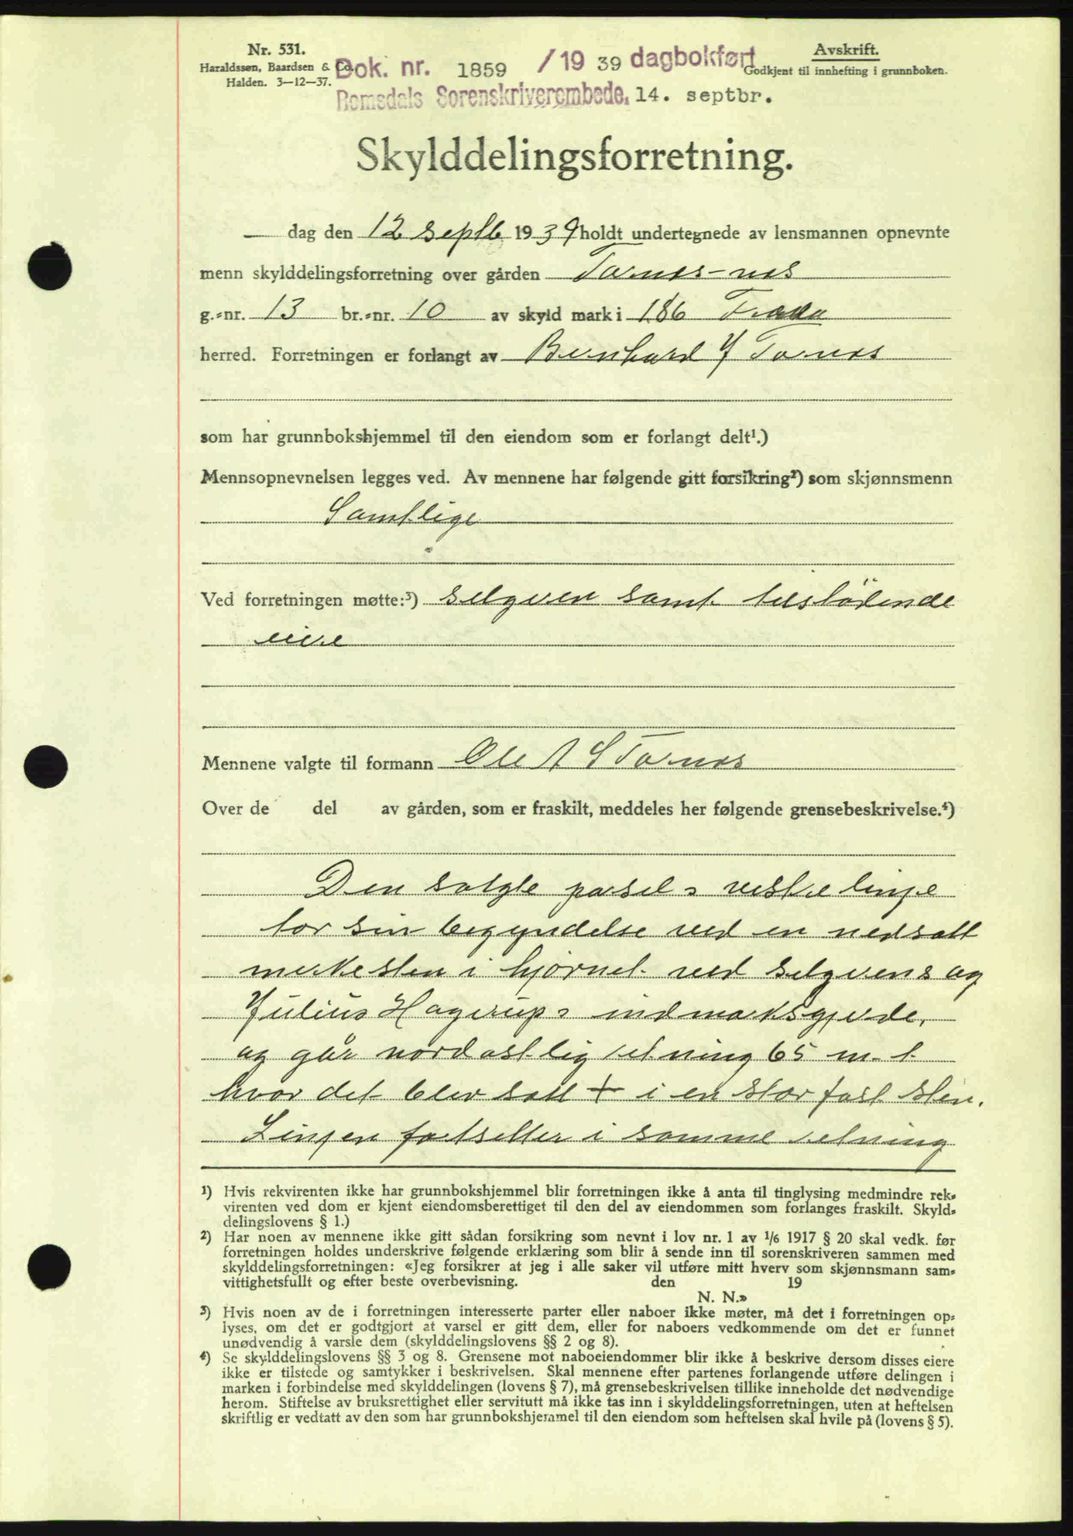 Nr. 531.
Haraldssen, Baardsen & Co.
Halden. 3—12—37.
Dok. nr. 1859 /19 39 dagbokført
Romsdals Sorenskriverembede. 14. septbr.
Avskrift.
Godkjent til innhefting i grunnboken.
Skylddelingsforretning.
— dag den 12 septb 1939 holdt undertegnede av lensmannen opnevnte
menn skylddelingsforretning over gården Tornes-nes
g.-nr. 13 br.-nr. 10 av skyld mark i 1.86 Fræna
herred. Forretningen er forlangt av Bernhard J Tornes
som har grunnbokshjemmel til den eiendom som er forlangt delt¹.)
Mennsopnevnelsen legges ved. Av mennene har følgende gitt forsikring²) som skjønnsmenn
Samtlige
Ved forretningen møtte:³) selgeren samt tilstötende
eire
Mennene valgte til formann Ole A S Tornes
Over de del av gården, som er fraskilt, meddeles her følgende grensebeskrivelse.⁴)
Den solgte parsels vestre linje
tar sin begyndelse ved en nedsatt
merkesten i hjørnet ved selgerens og
Julius Hagerups indmarksgjerde,
og går nordøstlig retning 65 m. t.
hvor det blev satt + i en stor fast sten.
Linjen fortsetter i samme retning
¹) Hvis rekvirenten ikke har grunnbokshjemmel blir forretningen ikke å anta til tinglysing medmindre rek-
virenten ved dom er kjent eiendomsberettiget til den del av eiendommen som forlanges fraskilt. Skyld-
delingslovens § 1.)
²) Har noen av mennene ikke gitt sådan forsikring som nevnt i lov nr. 1 av 1/6 1917 § 20 skal vedk. før
forretningen holdes underskrive følgende erklæring som blir å sende inn til sorenskriveren sammen med
skylddelingsforretningen: «Jeg forsikrer at jeg i alle saker vil utføre mitt hverv som skjønnsmann sam-
vittighetsfullt og efter beste overbevisning. den 19
N. N.»
³) Hvis noen av de i forretningen interesserte parter eller naboer ikke møter, må det i forretningen op-
lyses, om det er godtgjort at varsel er gitt dem, eller for naboers vedkommende om det er funnet
unødvendig å varsle dem (skylddelingslovens §§ 2 og 8).
⁴) Se skylddelingslovens §§ 3 og 8. Grensene mot naboeiendommer blir ikke å beskrive dersom disses eiere
ikke er tilstede og samtykker i beskrivelsen. Skal mennene efter partenes forlangende utføre delingen i
marken i forbindelse med skylddelingen (lovens § 7), må grensebeskrivelsen tillike inneholde det nødvendige
herom. Stiftelse av bruksrettighet eller servitutt må ikke tas inn i skylddelingsforretningen, uten at heftelsen
skriftlig er vedtatt av den som har grunnbokshjemmel til den eiendom som heftelsen skal hvile på (lovens § 5).